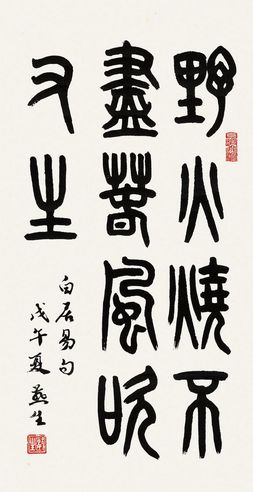 野火燒不
盡萅風吹
又生
白居易句
戊午夏燕生